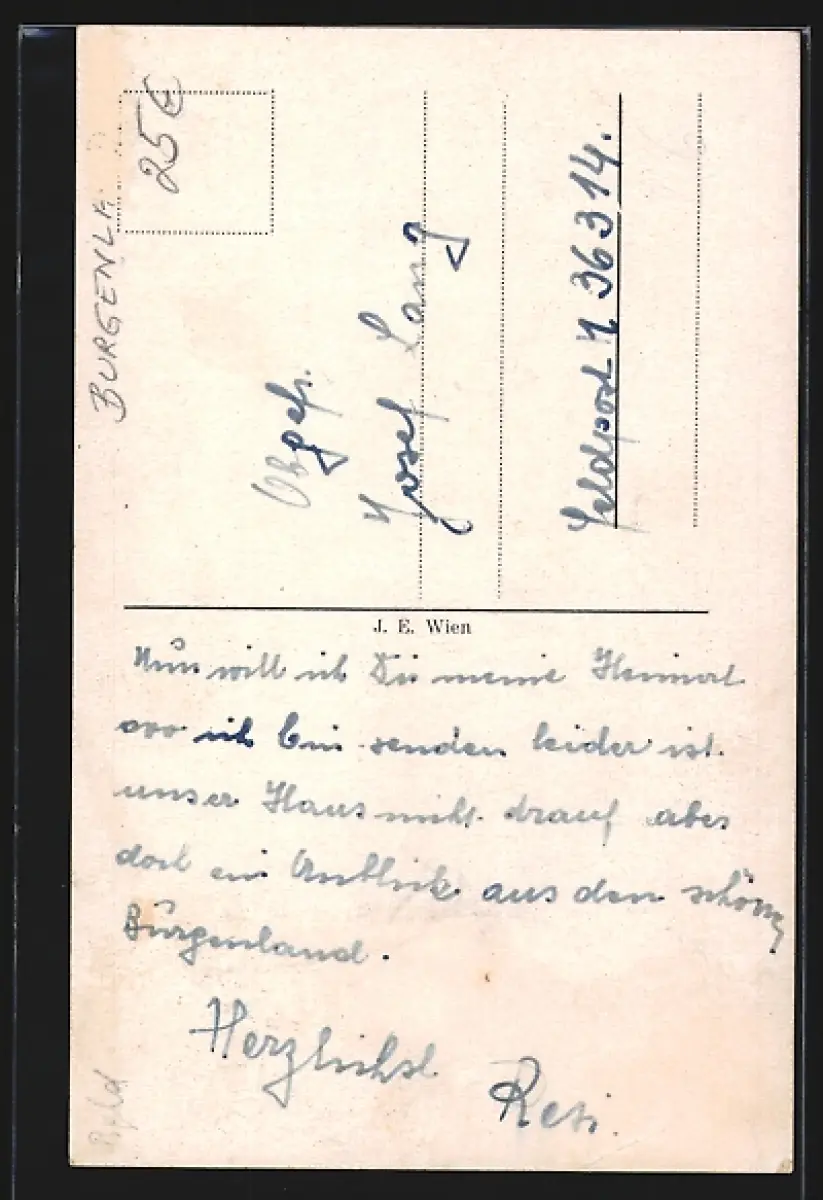 BURGENLA
25€
Obgefr.
Josef Lang
Feldpost N 36314.
J. E. Wien
Nun will ich Dir meine Heimat
wo ich bin senden leider ist
unser Haus nicht drauf aber
doch ein Anblick aus den schönen
Burgenland.
Herzlichst
Resi.